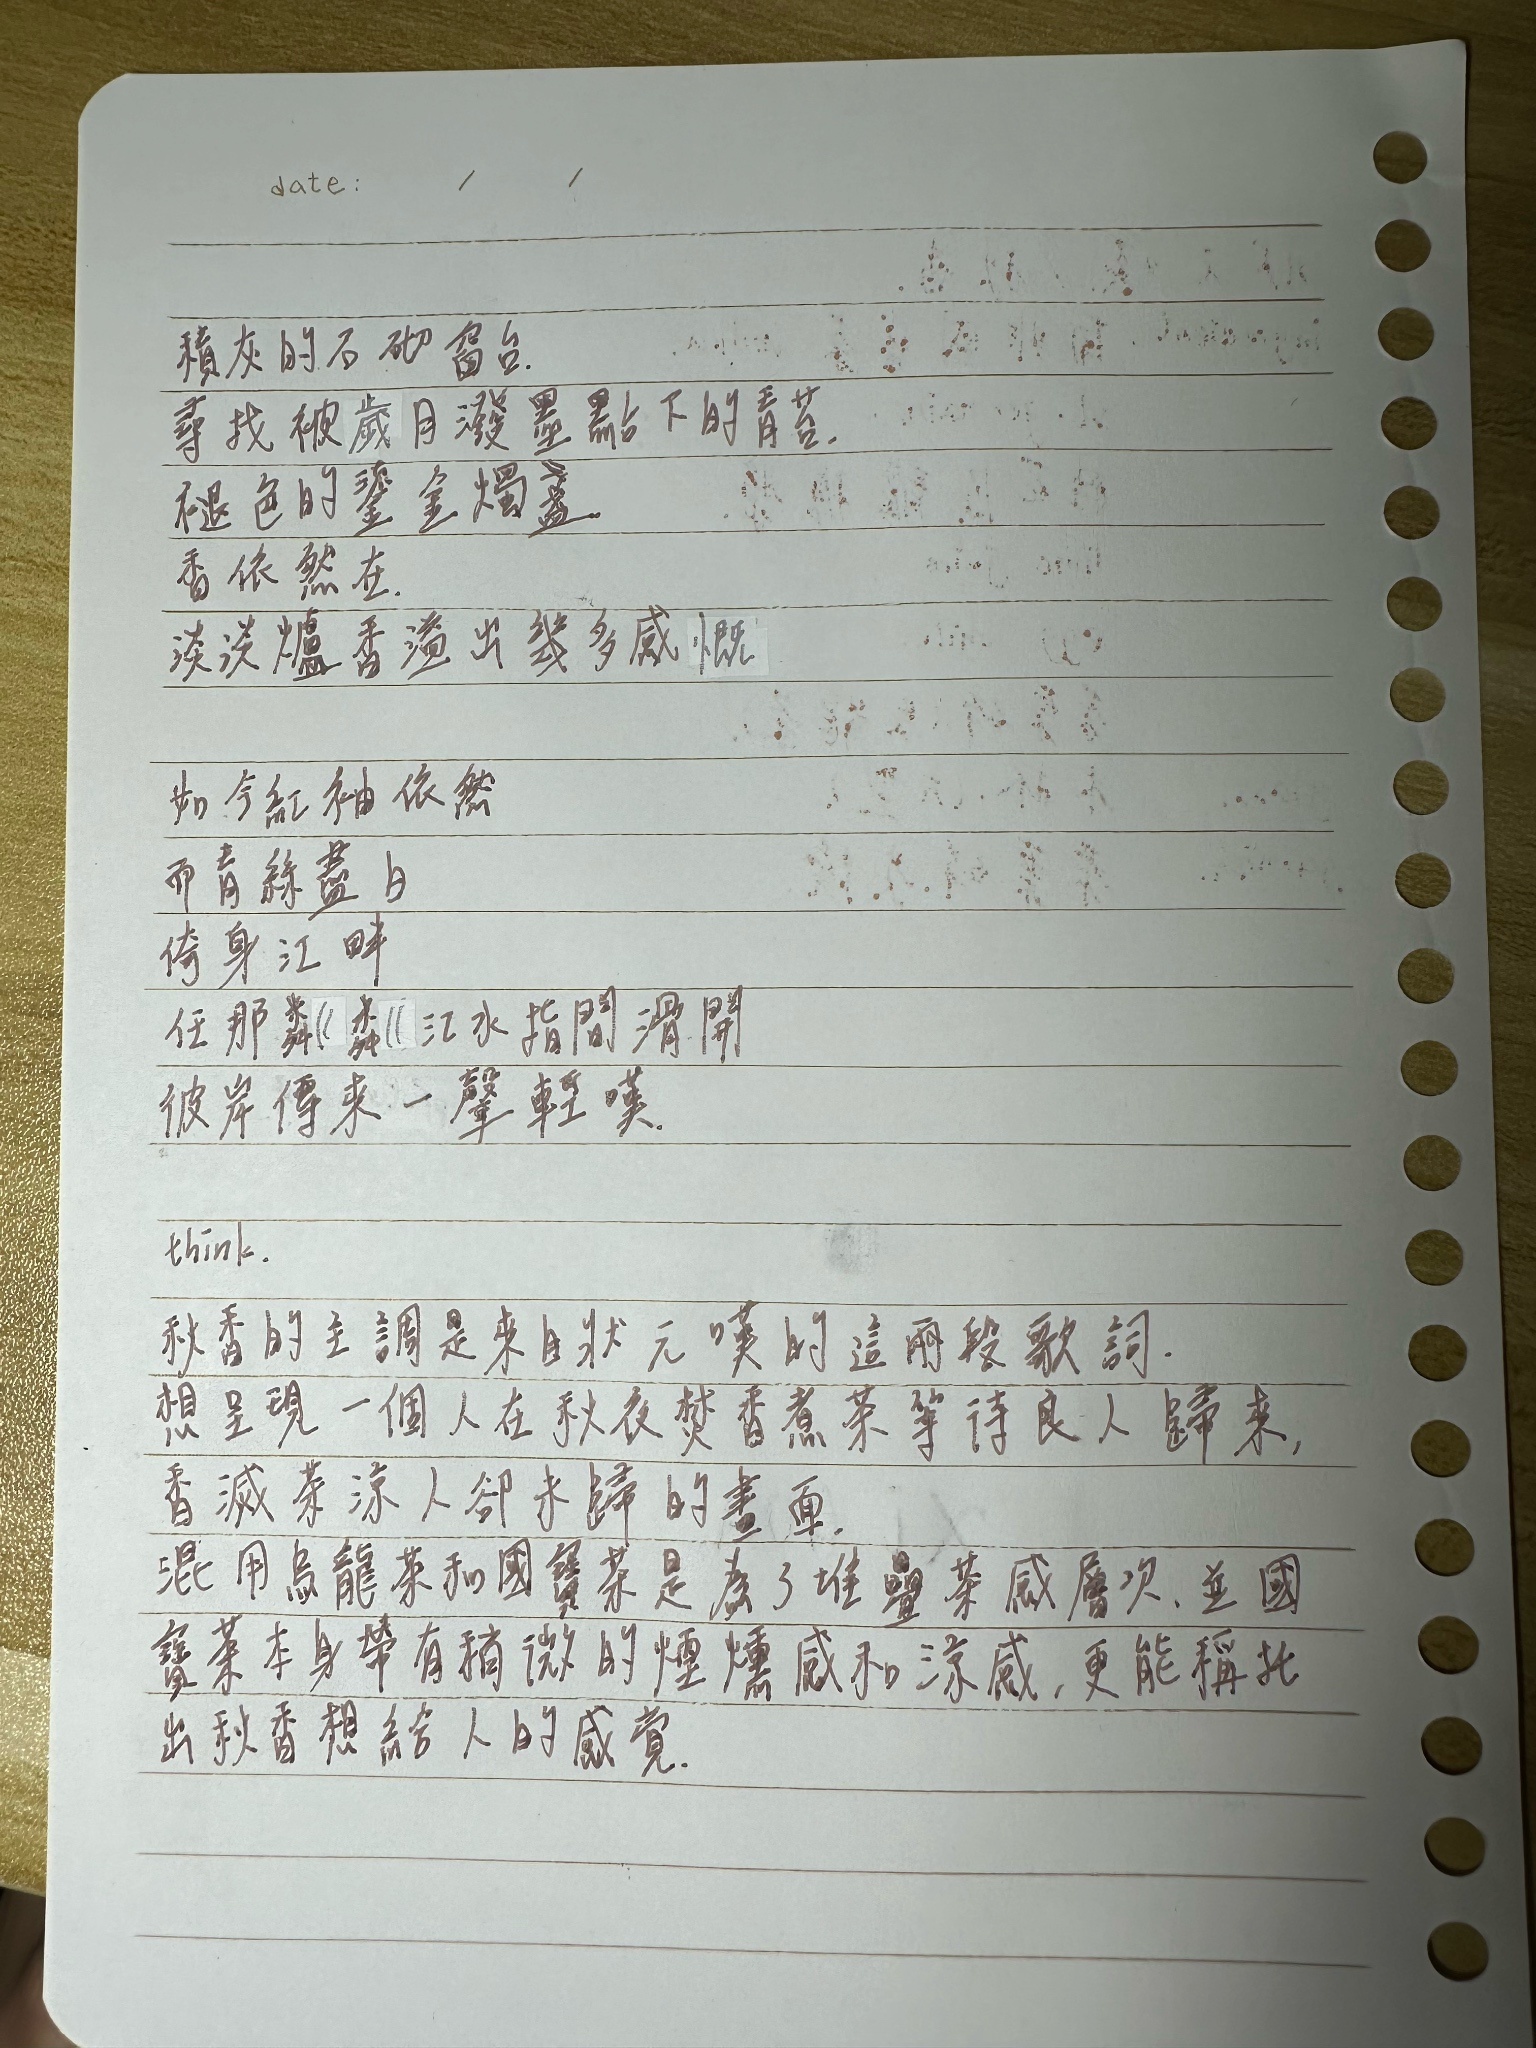 date: / /
積灰的石砌窗台.
尋找被歲月潑墨點下的青苔.
褪色的鎏金燭盞.
香依然在.
淡淡爐香溢出幾多感慨
如今紅袖依然
而青絲蓋白
倚身江畔
任那粼粼江水指間滑開
彼岸傳來一聲輕嘆.
think.
秋香的主調是來自狀元嘆的這兩段歌詞.
想呈現一個人在秋夜焚香煮茶等待良人歸來,
香滅茶涼人卻未歸的畫面.
混用烏龍茶和國寶茶是為了堆疊茶感層次、並國
寶茶本身帶有稍微的煙燻感和涼感,更能稱托
出秋香想給人的感覺.